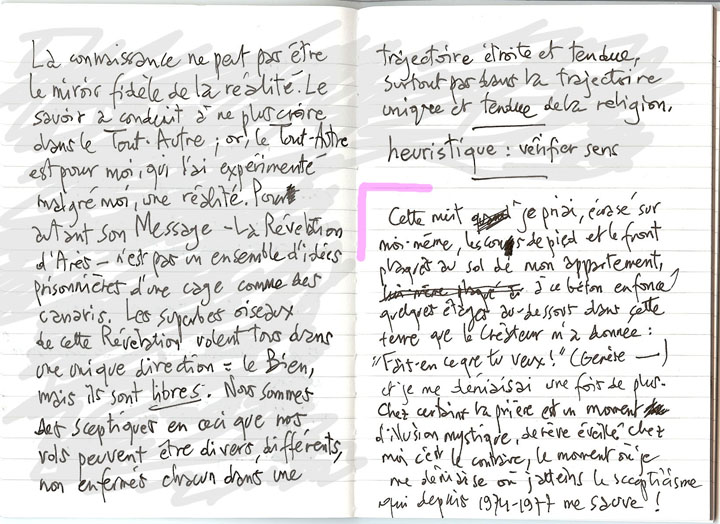 La connaissance ne peut pas être
le miroir fidèle de la réalité. Le
savoir a conduit à ne plus croire
dans le Tout-Autre ; or, le Tout-Autre
est pour moi, qui l'ai expérimenté
malgré moi, une réalité. Pour
autant son Message — La Révélation
d'Arès — n'est pas un ensemble d'idées
prisonnières d'une cage comme des
canaris. Les superbes oiseaux
de cette Révélation volent tous dans
une unique direction = le Bien,
mais ils sont libres. Nous sommes
des sceptiques en ceci que nos
vols peuvent être divers, différents,
non enfermés chacun dans une
trajectoire étroite et tendue,
surtout pas dans la trajectoire
unique et tendue de la religion.
heuristique : vérifier sens
Cette nuit je priai, écrasé sur
moi-même, les cous de pied et le front
plaqués au sol de mon appartement,
à ce béton enfoncé
quelques étages au-dessous dans cette
terre que le Créateur m'a donnée :
"Fais-en ce que tu veux !" (Genèse —)
et je me déniaisai une fois de plus.
Chez certains la prière est un moment
d'illusion mystique, de rêve éveillé chez
moi c'est le contraire, le moment où je
me déniaise où j'atteins le scepticisme
qui depuis 1974-1977 me sauve !